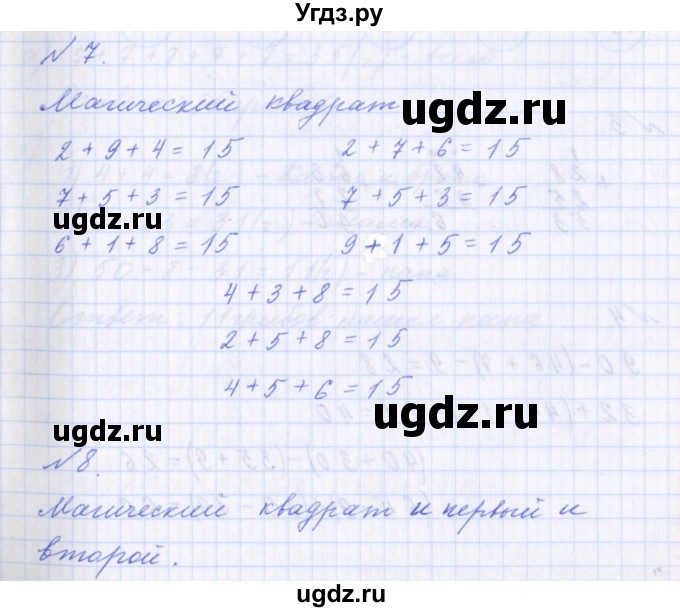 Угдз.ру
№ 7.
Магический квадрат
угдз.ru
2 + 9 + 4 = 15 2 + 7 + 6 = 15
угдз.ru
7 + 5 + 3 = 15 7 + 5 + 3 = 15
6 + 1 + 8 = 15 9 + 1 + 5 = 15
4 + 3 + 8 = 15
2 + 5 + 8 = 15
4 + 5 + 6 = 15
угдз.ru угдз.ru
№ 8.
Магический квадрат и первый и
второй.
угдз.ru